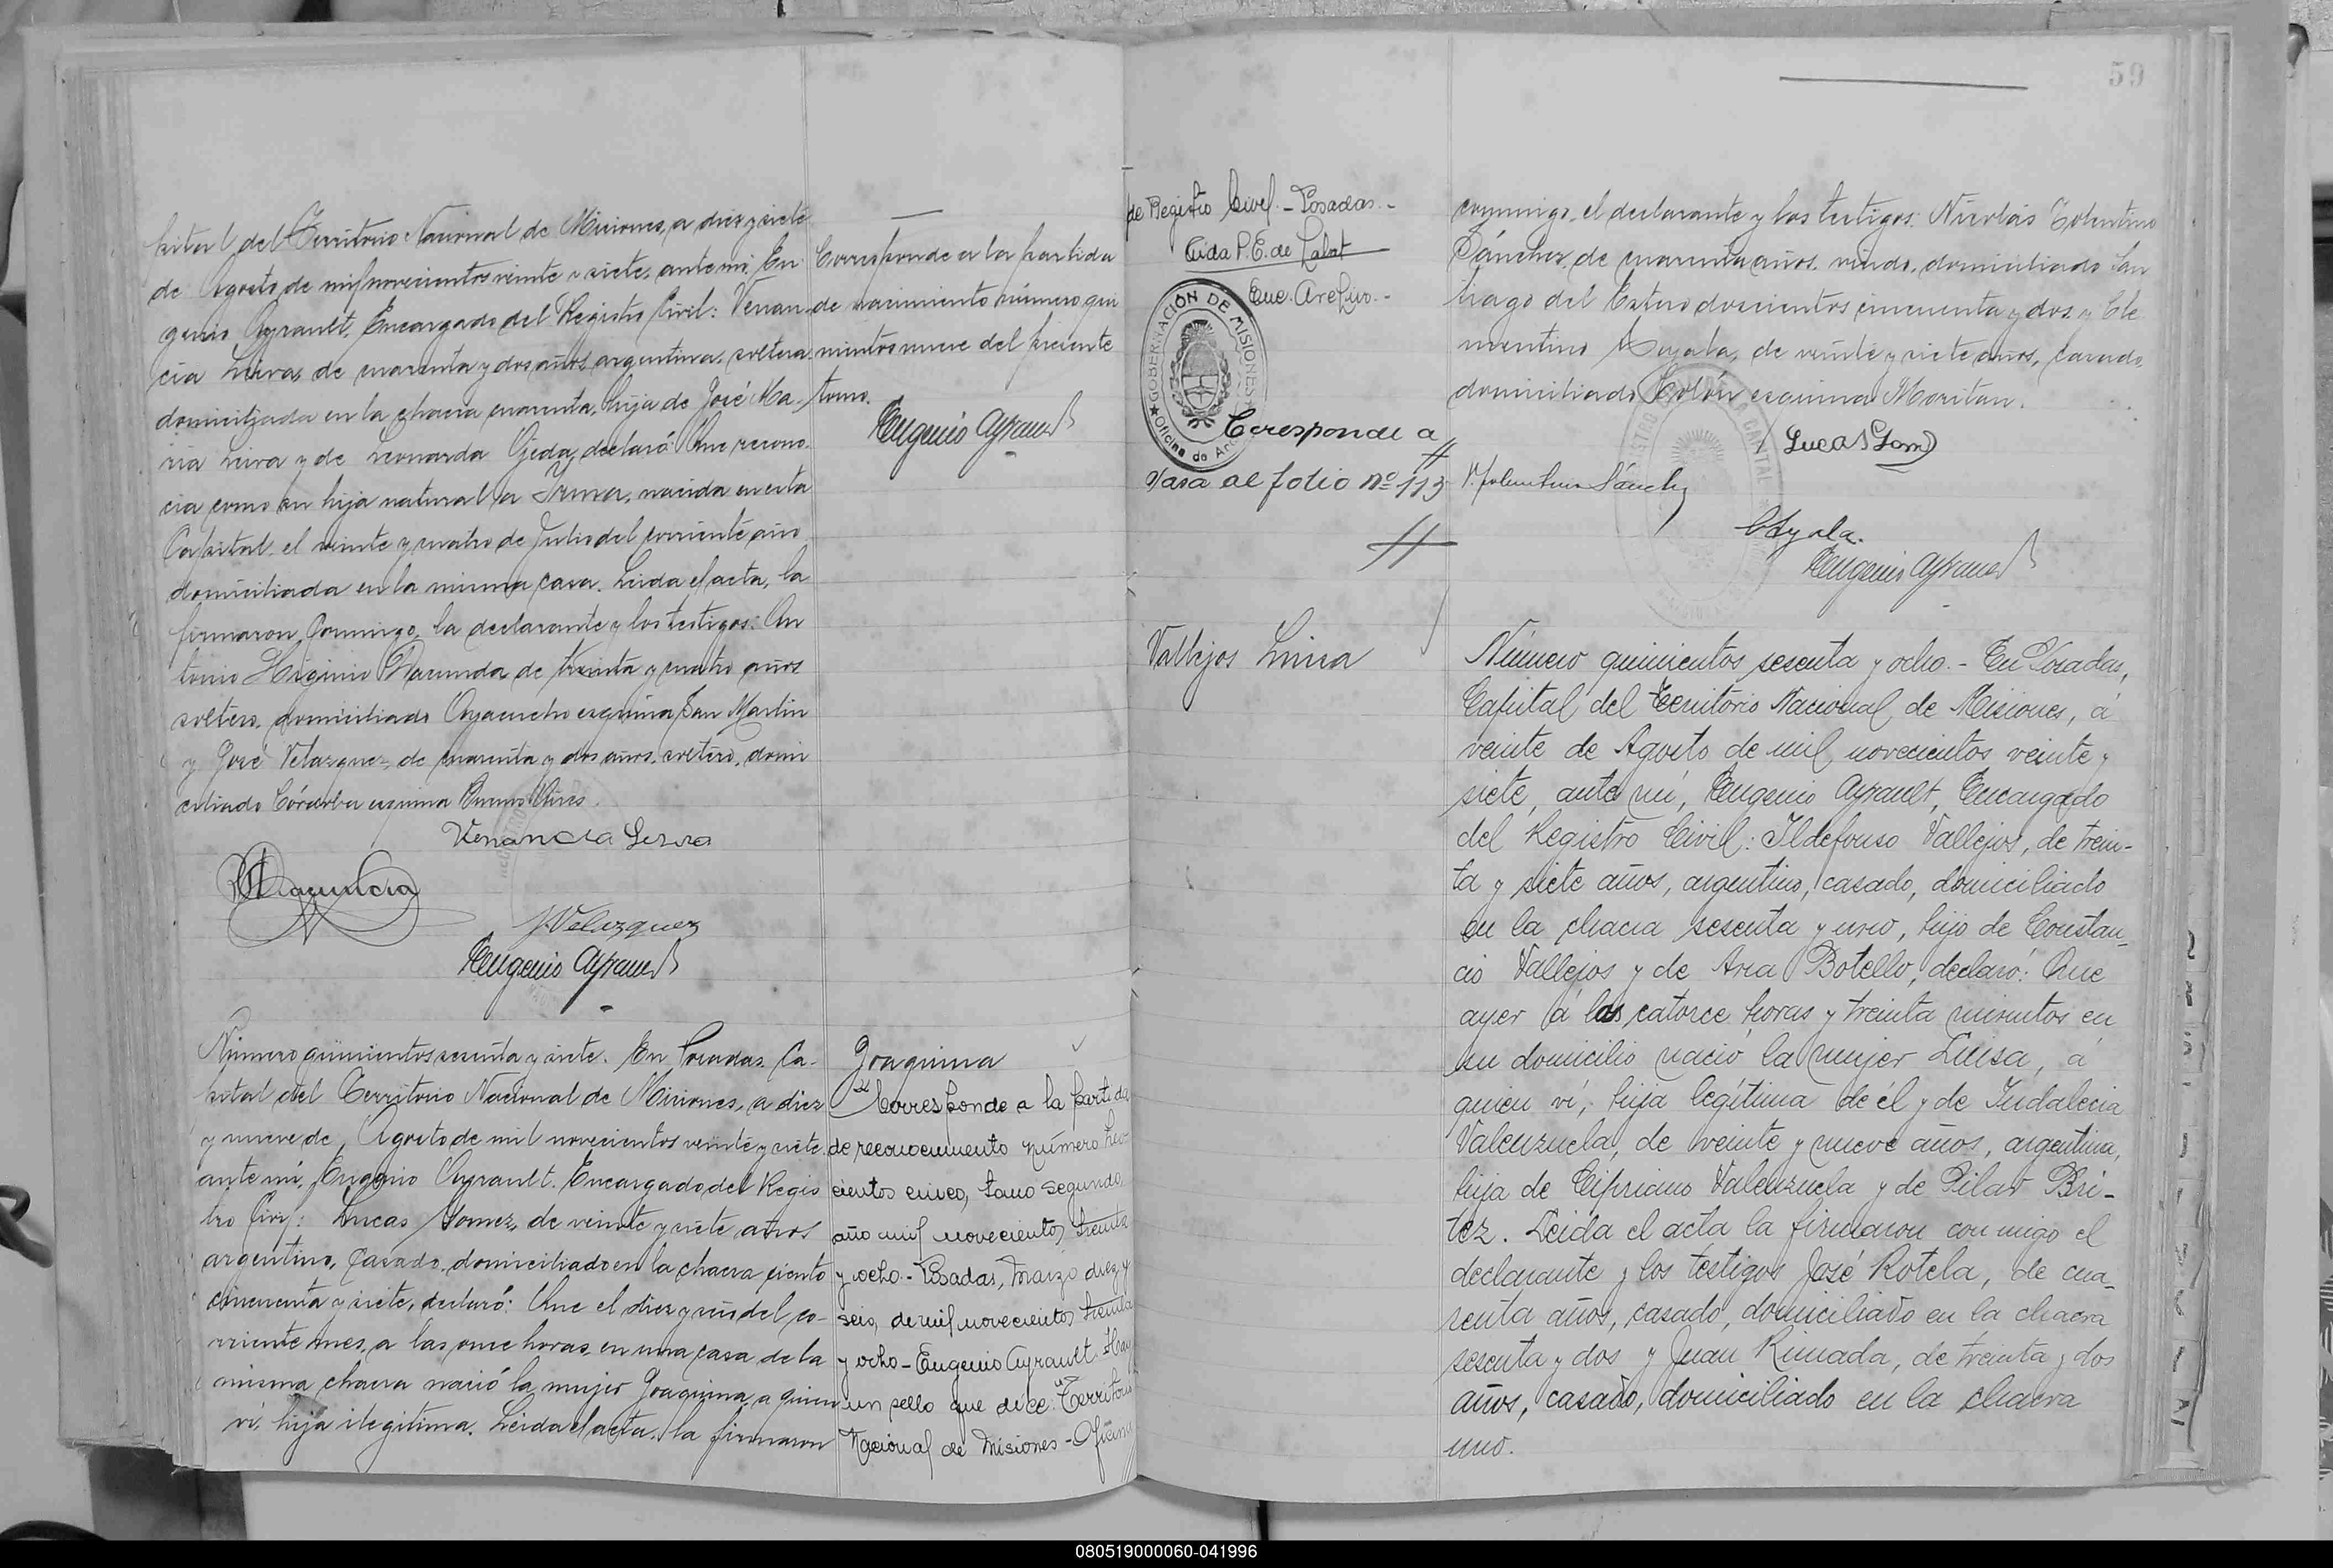 pital del Territorio Nacional de Misiones, a diez y siete
de Agosto de mil novecientos veinte y siete, ante mí, Eu
genio Ayrault, Encargado del Registro Civil: Venan
cia Leiva, de cuarenta y dos años, argentina, soltera,
domiciliada en la chacra cuarenta, hija de José Ma
ria Leiva y de Leonarda Ojeda, declaró: Que recono
cia como su hija natural a Irma, nacida en esta
Capital el veinte y cuatro de Julio del corriente año
domiciliada en la misma casa. Leida el acta, la
firmaron conmigo, la declarante y los testigos: An
tonio Higinio Baruncia de treinta y cuatro años
soltero, domiciliado Ayacucho esquina San Martin
y José Velazquez, de cuarenta y dos años, soltero, domi
ciliado Córdoba esquina Buenos Aires.
Venancia Leiva
J. Velazquez
Eugenio Ayrault
Corresponde a la partida
de nacimiento número qui
nientos nueve del presente
tomo.
Eugenio Ayrault
Número quinientos sesenta y siete. En Posadas, Ca-
pital del Territorio Nacional de Misiones, a diez
y nueve de Agosto de mil novecientos veinte y siete
ante mí, Eugenio Ayrault, Encargado del Regis
tro Civil: Lucas Gomez, de veinte y siete años
argentino, casado, domiciliado en la chacra ciento
cincuenta y siete, declaró: Que el diez y seis del co-
rriente mes, a las once horas, en una casa de la
misma chacra nació la mujer Joaquina, a quien
ví, hija ilegitima. Leida el acta, la firmaron
Joaquina
Corresponde a la partida
de reconocimiento número tres
cientos cinco, tomo segundo
año mil novecientos treinta
y ocho.- Posadas, Marzo diez y
seis, de mil novecientos treinta
y ocho - Eugenio Ayrault. Hay
un sello que dice: "Territorio
Nacional de Misiones - Oficina
59
de Registro Civil. - Posadas.-
Aida P. E. de Labat
Enc. Archivo.-
GOBERNACIÓN DE MISIONES
Coresponde a
al folio nº 113
conmigo, el declarante y los testigos: Nicolás Tolentino
Sánchez, de cuarenta años, viudo, domiciliado San
tiago del Estero doscientos cincuenta y dos y Cle
mentino Ayala, de veinte y siete años, casado,
domiciliado Colón esquina Moritan.
Lucas Gomez
N. Tolentino Sánchez
C Ayala.
Eugenio Ayrault
Vallejos Luisa
Número quinientos sesenta y ocho.- En Posadas,
Capital del Territorio Nacional de Misiones, á
veinte de Agosto de mil novecientos veinte y
siete, ante mí, Eugenio Ayrault, Encargado
del Registro Civil: Ildefonso Vallejos, de trein-
ta y siete años, argentino, casado, domiciliado
en la chacra sesenta y uno, hijo de Constan-
cio Vallejos y de Ana Botello, declaró: Que
ayer á las catorce horas y treinta minutos en
su domicilio nació la mujer Luisa, á
quien ví, hija legítima de él y de Indalecia
Valenzuela, de veinte y nueve años, argentina,
hija de Cipriano Valenzuela y de Pilar Bri-
tez. Leida el acta la firmaron conmigo el
declarante y los testigos José Rotela, de cua-
renta años, casado, domiciliado en la chacra
sesenta y dos y Juan Rimada, de treinta y dos
años, casado, domiciliado en la chacra
uno.
080519000060-041996